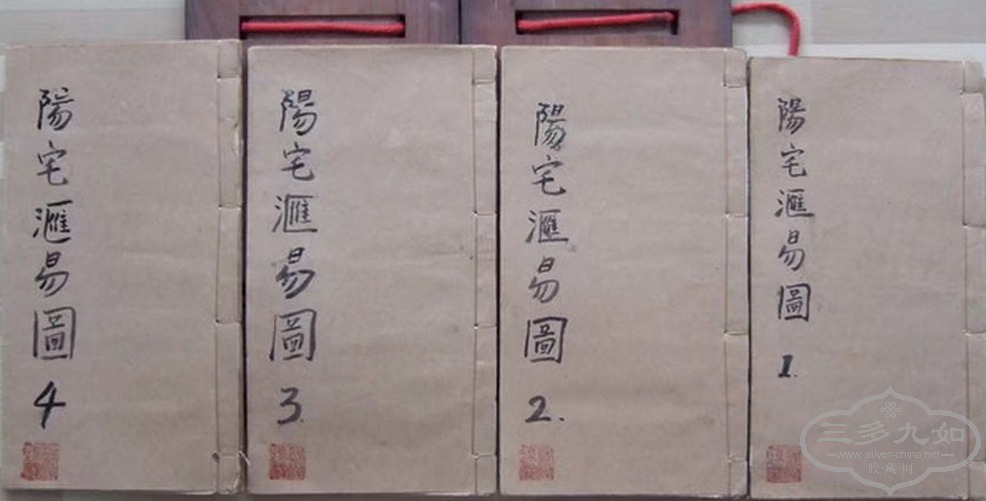 陽宅滙易圖 1.
陽宅滙易圖 2.
陽宅滙易圖 3.
陽宅滙易圖 4
三多九如
www.silver-china.net
收藏网